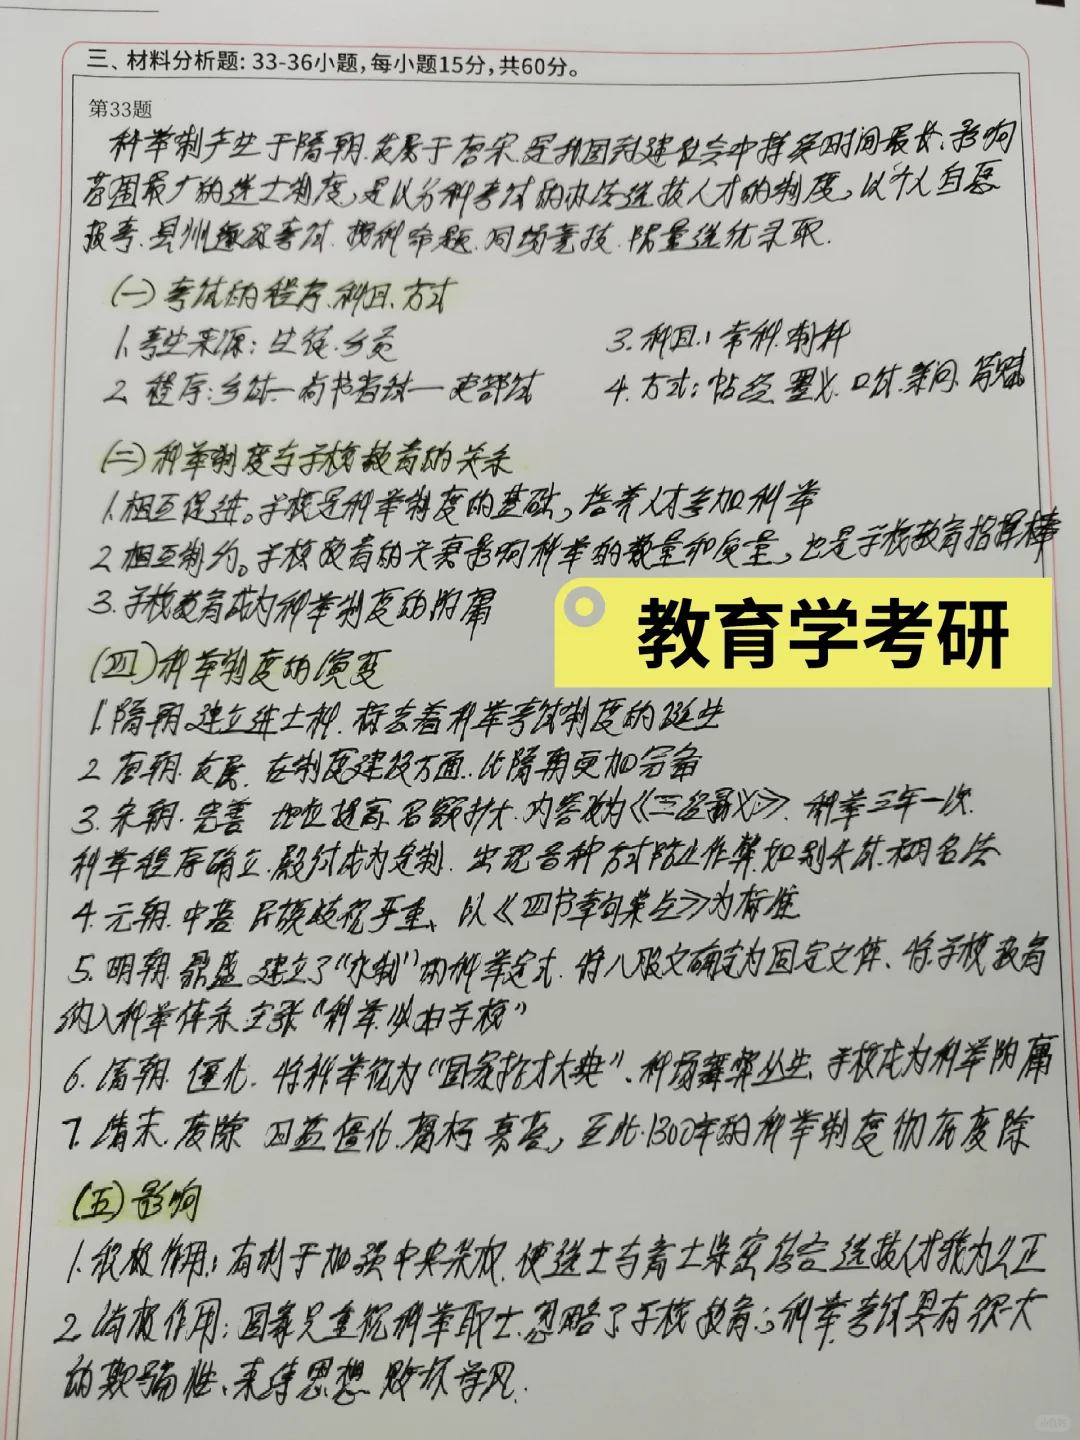 三、材料分析题: 33-36小题,每小题15分,共60分。
第33题
科举制产生于隋朝.发展于唐宋.是我国封建社会中持续时间最长.影响
范围最大的选士制度,是以分科考试的办法选拔人才的制度,以个人自愿
报考.县州逐级考试.按科命题.同场竞技.限量选优录取.
(一)考试的程序.科目.方式
1.考生来源:生徒.乡贡
3.科目:常科.制科
2.程序:乡试—尚书省试—吏部试
4.方式:帖经.墨义.口试.策问.诗赋
(二)科举制度与学校教育的关系
1.相互促进。学校是科举制度的基础,培养人才参加科举
2.相互制约。学校教育的兴衰影响科举的数量和质量,也是学校教育指挥棒
3.学校教育成为科举制度的附庸
教育学考研
(四)科举制度的演变
1.隋朝.建立进士科.标志着科举考试制度的诞生
2.唐朝.发展.在制度建设方面.比隋朝更加完备
3.宋朝.完善 地位提高.名额扩大.内容改为《三经新义》.科举三年一次.
科举程序确立.殿试成为定制.出现各种方式防止作弊.如别头试.糊名法
4.元朝.中落 民族歧视严重、以《四书章句集注》为标准
5.明朝.鼎盛 建立了“永制”的科举定式.将八股文确定为固定文体、将学校教育
纳入科举体系 主张“科举必由学校”
6.清朝.僵化.将科举视为“国家抡才大典”、科场舞弊丛生.学校成为科举附庸
7.清末.废除 日益僵化.腐朽 衰落,至此.1300年的科举制度彻底废除
(五)影响
1.积极作用:有利于加强中央集权.使选士与育士紧密结合 选拔人才较为公正
2.消极作用:国家只重视科举取士.忽略了学校教育;科举考试具有很大
的欺骗性、束缚思想 败坏学风.